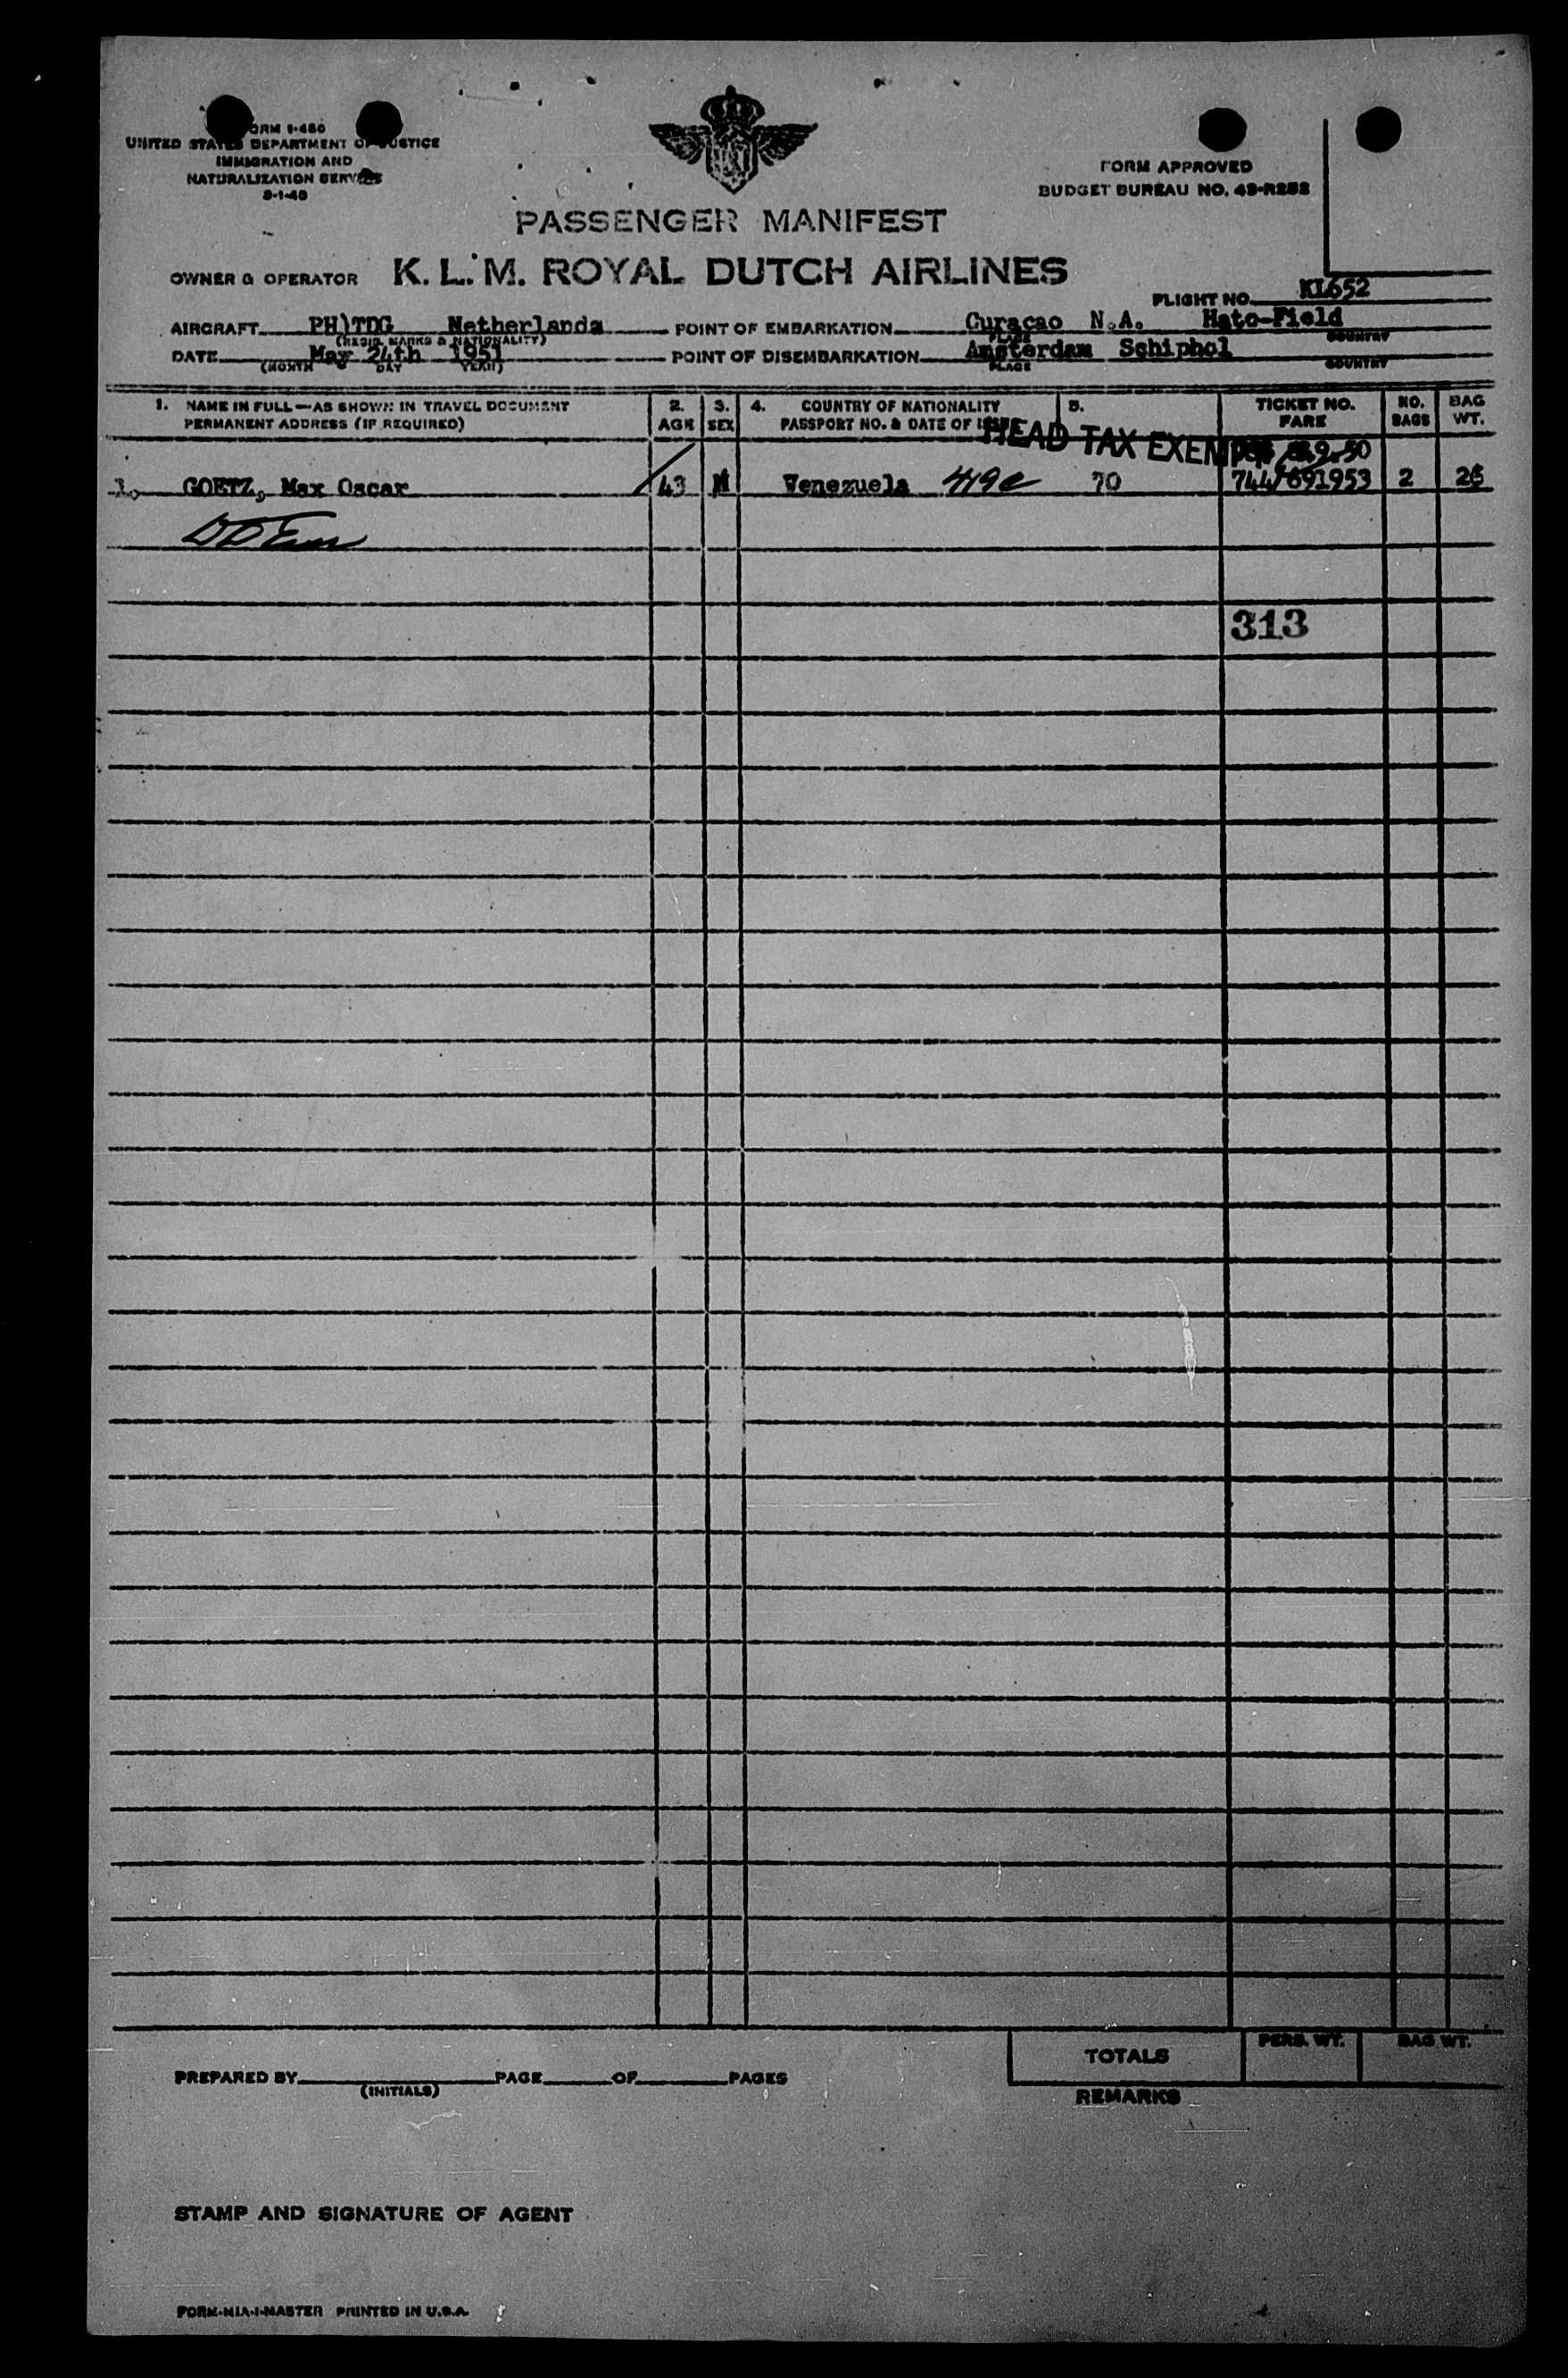 FORM I-460
UNITED STATES DEPARTMENT OF JUSTICE
IMMIGRATION AND
NATURALIZATION SERVICE
FORM APPROVED
BUDGET BUREAU NO. 43-R252
PASSENGER MANIFEST
OWNER & OPERATOR K. L. M. ROYAL DUTCH AIRLINES
FLIGHT NO. KL652
AIRCRAFT PH)TDG Netherlands POINT OF EMBARKATION Curacao N.A. Hato-Field
(REGIS. MARKS & NATIONALITY) PLACE COUNTRY
DATE May 24th 1951 POINT OF DISEMBARKATION Amsterdam Schiphol
(MONTH DAY YEAR) PLACE COUNTRY
1. NAME IN FULL—AS SHOWN IN TRAVEL DOCUMENT 2. 3. 4. COUNTRY OF NATIONALITY 5. TICKET NO. NO. BAG
PERMANENT ADDRESS (IF REQUIRED) AGE SEX PASSPORT NO. & DATE OF ISSUE FARE BAGS WT.
HEAD TAX EXEMPT
1. GOETZ, Max Oscar 43 M Venezuela 419c 70 744/691953 2 26
313
TOTALS PERS. WT. BAG WT.
PREPARED BY PAGE OF PAGES
(INITIALS)
REMARKS
STAMP AND SIGNATURE OF AGENT
FORM-MIA-1-MASTER PRINTED IN U.S.A.